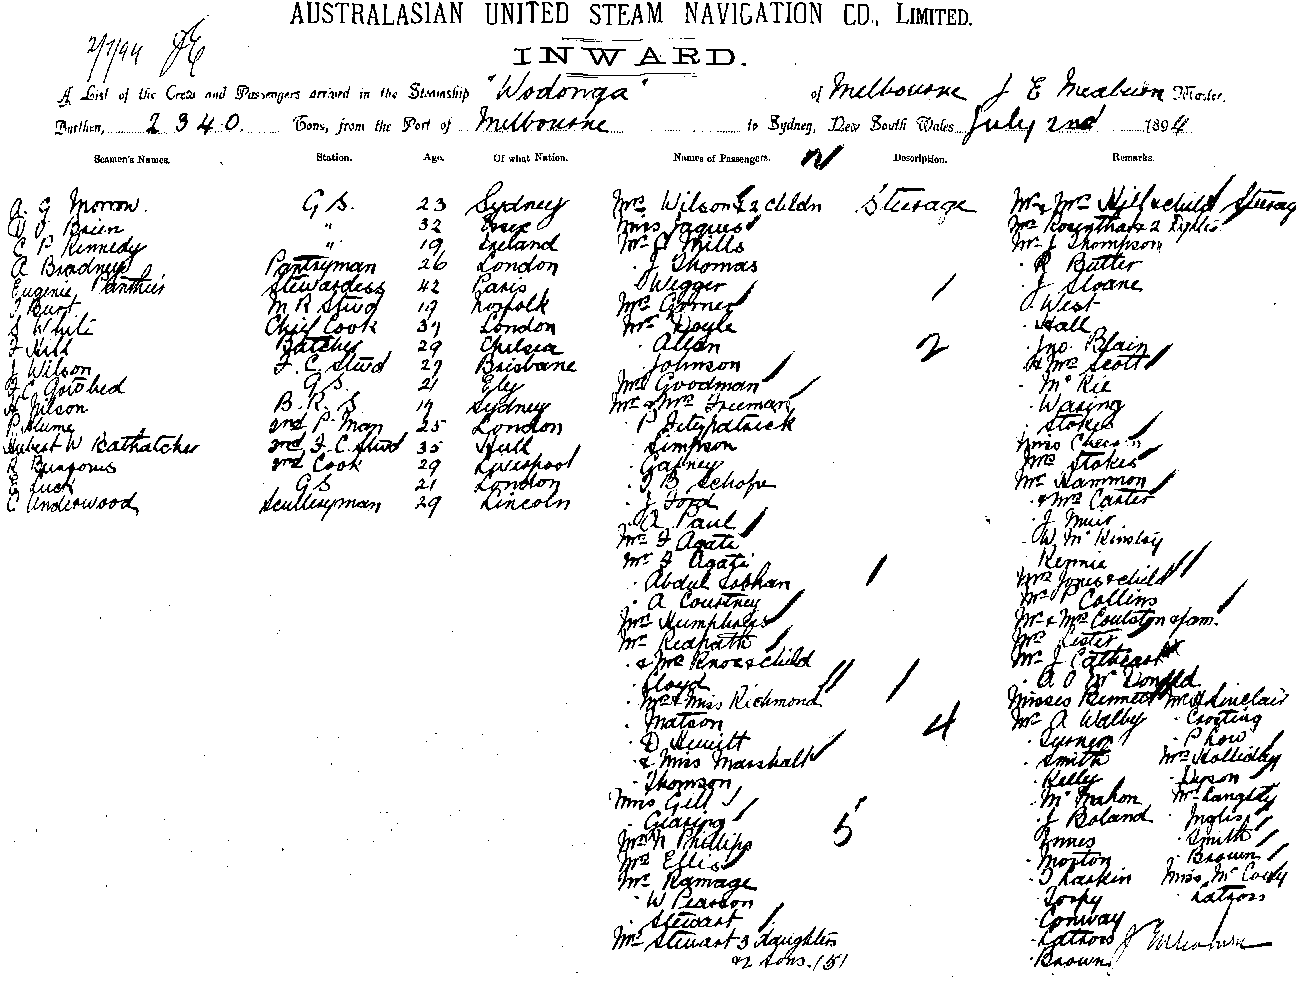 AUSTRALASIAN UNITED STEAM NAVIGATION CO., LIMITED.
2/7/94
INWARD.
A List of the Crew and Passengers arrived in the Steamship "Wodonga" of Melbourne J E Meaburn Master,
Burthen, 2340. Tons, from the Port of Melbourne to Sydney, New South Wales July 2nd 1894
Seamen's Names. Station. Age. Of what Nation. Names of Passengers. Description. Remarks.
A. G Morrow. G S. 23 Sydney
J Brien " 32 Essex
C P Kennedy " 19 Ireland
A Bradney Pantryman 26 London
Eugenie Panthier Stewardess 42 Paris
J Burt M R Stwd 19 Norfolk
S White Chief Cook 37 London
J Hill Butcher 29 Chelsea
J Wilson F. C Stwd 27 Brisbane
G S. 21 Ely
B. R. S 19 Sydney
P Hume 2nd P. Man 25 London
Hubert W Rathatcher 2nd F. C Stwd 35 Hull
R Burrows 2nd Cook 29 Liverpool
Luck G S 21 London
C Underwood Sculleryman 29 Lincoln
Mrs Wilson & 2 childn Steerage
Miss Jaques
Mr J Mills
· J Thomas
· Wegger
Mrs Gomer
Mr Doyle
· Allan
· Johnson
Mrs Goodman
Mr & Mrs Freeman
· P Fitzpatrick
· Simpson
· Gafney
· J B Schofe
· J Ford
· A Paul
Mrs F Agati
Mr F Agati
· Abdul Sobhan
· A Courtney
Mrs Humphries
Mr Redpath
· & Mrs Knox & child
· Lloyd
· Mr & Miss Richmond
· Matson
· D Hewitt
· & Miss Marshall
· Thomson
Miss Gill
· Glasing
Mr N Phillips
Mrs Ellis
Mr Ramage
· W Pearson
· Stewart
Mrs Stewart 3 daughters
& 2 sons. (5)
1
2
1
1
4
5
Mr & Mrs Hill & child Steerag
Mr J Thompson
· R Butter
· J Sloane
· West
· Hall
· Jno. Blain
· & Mrs Scott
· McKie
· Waring
· Stokes
Mrs Stokes
Mr Hammon
· & Mrs Carter
· J Muir
· W McKinsley
· Rennie
Mrs Jones & child
Mr P Collins
Mr & Mrs Coulston & fam.
Mrs Lester
Mr J Cathcart
· A O McDonald
Misses Bennett Mr H Sinclair
Mr A Walby · Crosting
· Turner · P Low
· Smith Mrs Holliday
· Kelly · Dyson
· McMahon Mr Langhty
· J Boland · Inglis
· Innes · Smith
· Morton · Brown
· J Larkin Miss McCody
· Torpy · Latross
· Conway
· Latross J Meaburn
· Brown